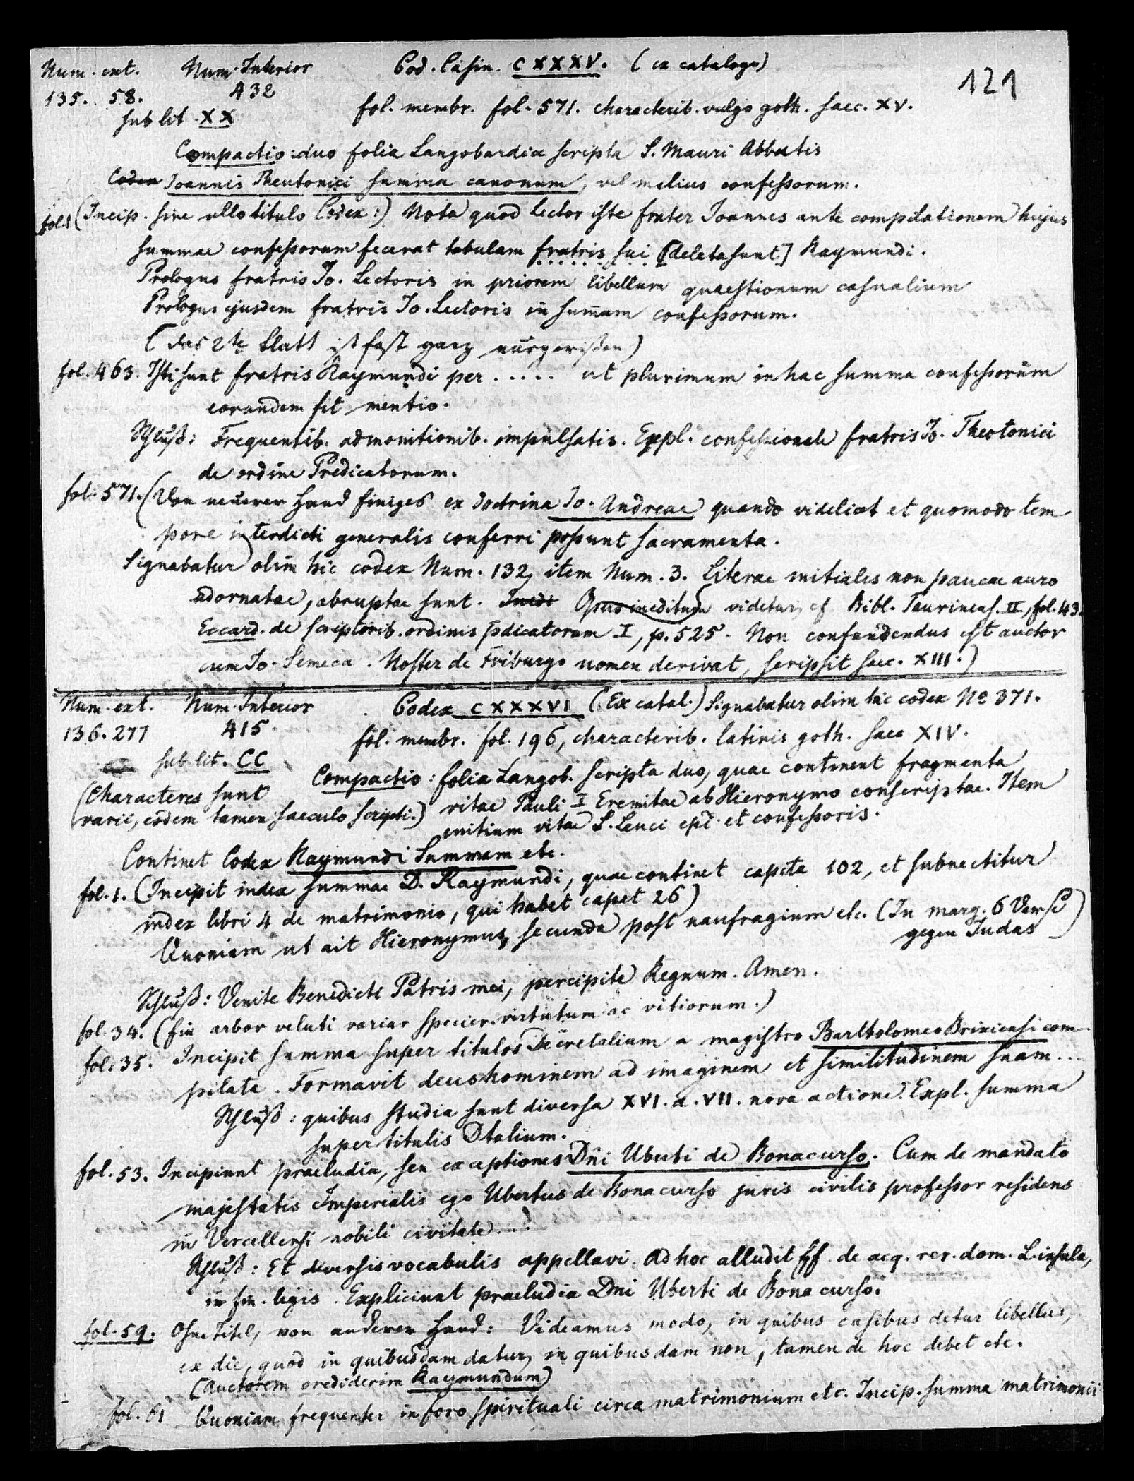 Num. ext. Num. Interior Cod. Casin. CXXXV. (ex catalogo)
121
135. 58. 432 fol. membr. fol. 571. characterib. vulgo goth. saec. XV.
sub lit. XX
Compactio: duo folia Langobardia scripta S. Mauri Abbatis
Codex Joannis Theutonici summa canonum, vel melius confessorum.
fol. 1 (Incip. sine ullo titulo Codex:) Nota quod lector iste frater Joannes ante compilationem hujus
summae confessorum fecerat tabulam fratris sui [deleta sunt] Raymundi.
Prologus fratris Jo. Lectoris in priorem libellum quaestionum casualium
Prologus ejusdem fratris Jo. Lectoris in summam confessorum.
(das 2te Blatt ist fast ganz ausgerissen)
fol. 463. Isti sunt fratris Raymundi per ..... ut plurimum in hac summa confessorum
eorundem fit mentio.
Schluß: Frequentib. admonitionib. impulsatis. Expl. confessionale fratris Jo. Theotonici
de ordine Predicatorum.
fol. 571. (Von neuerer Hand einiges ex doctrina Jo. Andreae quando videlicet et quomodo tem-
pore interdicti generalis conferri possunt sacramenta.
Signabatur olim hic codex Num. 132, item Num. 3. Literae initiales non paucae auro
adornatae, abruptae sunt. Opus ineditum videtur, cf. Bibl. Taurinens. II, fol. 43.
Eccard. de scriptorib. ordinis pdicatorum I, p. 525. Non confundendus est auctor
cum Jo. Semeca. Noster de Friburgo nomen derivat, scripsit saec. XIII.)
Num. ext. Num. Interior Codex CXXXVI (Ex catal.) Signabatur olim hic codex No 371.
136. 277 415 fol. membr. fol. 196, characterib. latinis goth. saec XIV.
sub lit. CC Compactio: folia Langob. scripta duo, quae continent fragmenta
(Characteres sunt vitae Pauli I Eremitae ab Hieronymo conscriptae. Item
varii, eodem tamen saeculo scripti.) initium vitae S. Leuci epi et confessoris.
Continet Codex Raymundi Summam etc.
fol. 1. (Incipit index summae D. Raymundi, quae continet capita 102, et subnectitur
index libri 4 de matrimonio, qui habet capet 26)
Quoniam ut ait Hieronymus, secunda post naufragium etc. (In marg. 6 Verse
gegen Judas)
Schluß: Venite Benedicti Patris mei, percipite Regnum. Amen.
fol. 34. (Ein arbor veluti variar specier. virtutum ac vitiorum.)
fol. 35. Incipit summa super titulos Decretalium a magistro Bartholomeo Brixiensi com-
pilata. Formavit deus hominem ad imaginem et similitudinem suam...
Schluß: quibus studia sunt diversa XVI. a. VII. nova actione. Expl. summa
super titulis Dtalium.
fol. 53. Incipiunt praeludia, seu exceptiones Dni Uberti de Bonacurso. Cum de mandato
majestatis Imperialis ego Ubertus de Bonacurso juris civilis professor residens
in Vercellensi nobili civitate....
Schluß: Et diversis vocabulis appellavi. Ad hoc alludit ff. de acq. rer. dom. L. insula,
in fin. legis. Expliciunt praeludia Dni Uberti de Bonacurso.
fol. 59. Ohne Titel, von anderer Hand: Videamus modo, in quibus casibus detur libellus,
ex dic, quod in quibusdam datur, in quibusdam non, tamen de hoc debet etc.
(Auctorem crediderim Raymundum)
fol. 61 Quoniam frequenter in foro spirituali circa matrimonium etc. Incip. summa matrimonii